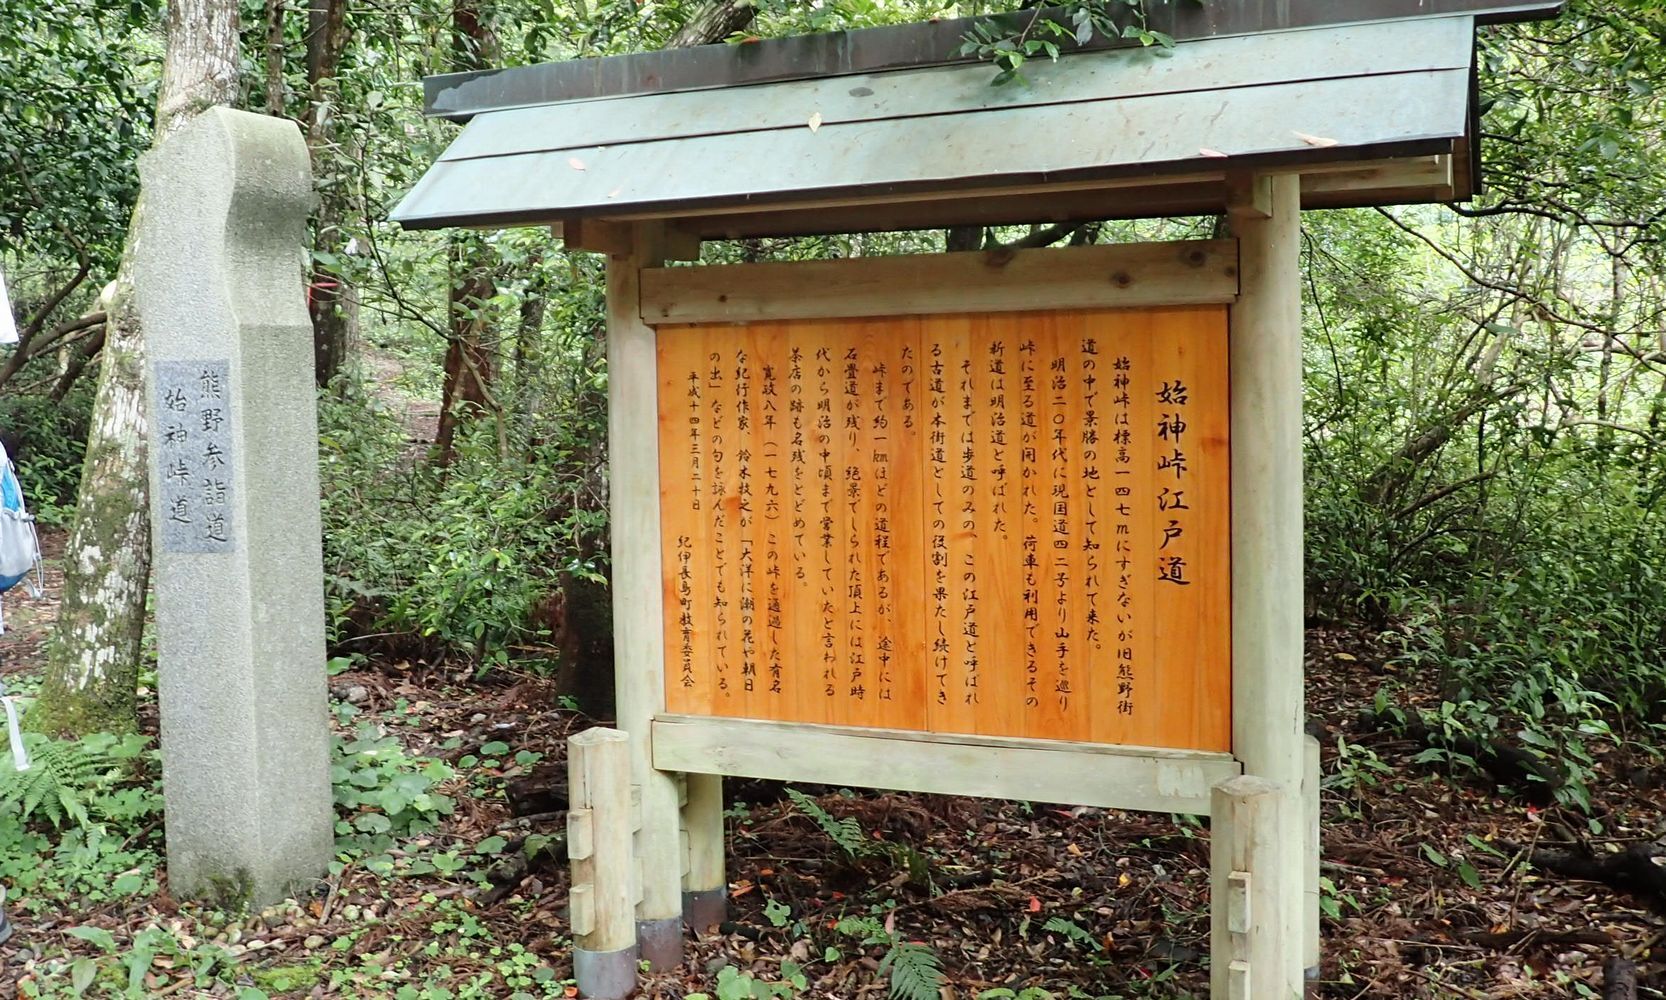 熊野参詣道
始神峠道
始神峠江戸道
始神峠は標高一四七mにすぎないが旧熊野街
道の中で景勝の地として知られて来た。
明治二〇年代に現国道四二号より山手を巡り
峠に至る道が開かれた。荷車も利用できるその
新道は明治道と呼ばれた。
それまでは歩道のみの、この江戸道と呼ばれ
る古道が本街道としての役割を果たし続けてき
たのである。
峠まで約一kmほどの道程であるが、途中には
石畳道が残り、絶景でしられた頂上には江戸時
代から明治の中頃まで営業していたと言われる
茶店の跡も名残をとどめている。
寛政八年(一七九六)この峠を通過した有名
な紀行作家、鈴木牧之が「大洋に潮の花や朝日
の出」などの句を詠んだことでも知られている。
平成十四年三月二十日
紀伊長島町教育委員会